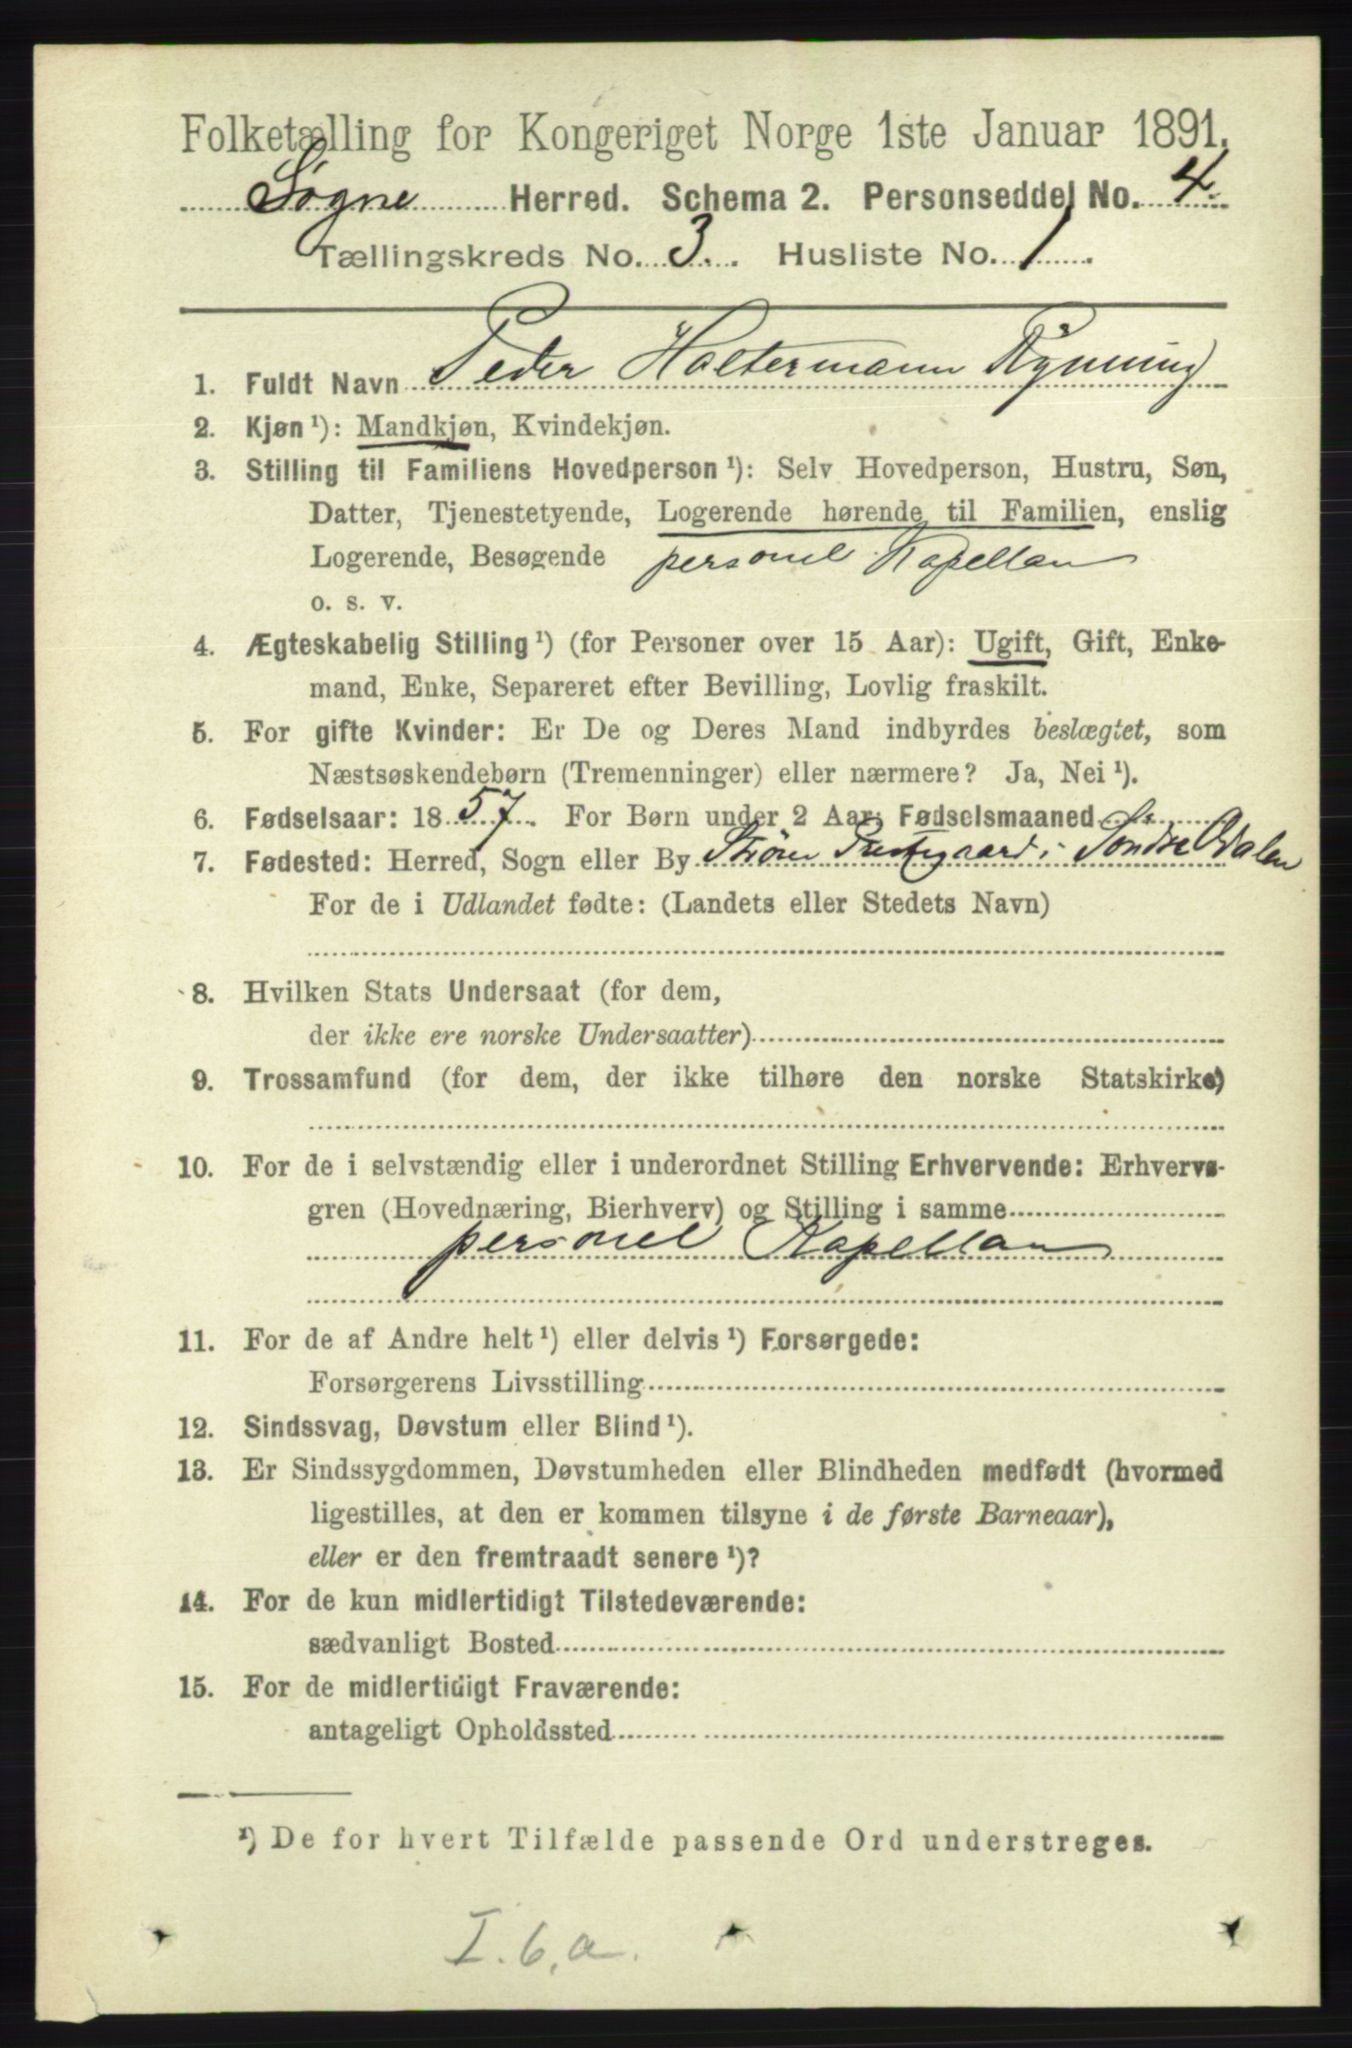 Folketælling for Kongeriget Norge 1ste Januar 1891.
Søgne Herred. Schema 2. Personseddel No. 4.
Tællingskreds No. 3. Husliste No. 1
1. Fuldt Navn Peder Holtermann Rynning
2. Kjøn ¹): Mandkjøn, Kvindekjøn.
3. Stilling til Familiens Hovedperson ¹): Selv Hovedperson, Hustru, Søn,
Datter, Tjenestetyende, Logerende hørende til Familien, enslig
Logerende, Besøgende personel Kapellan
o. s. v.
4. Ægteskabelig Stilling ¹) (for Personer over 15 Aar): Ugift, Gift, Enke-
mand, Enke, Separeret efter Bevilling, Lovlig fraskilt.
5. For gifte Kvinder: Er De og Deres Mand indbyrdes beslægtet, som
Næstsøskendebørn (Tremenninger) eller nærmere? Ja, Nei ¹).
6. Fødselsaar: 1857. For Børn under 2 Aar: Fødselsmaaned
7. Fødested: Herred, Sogn eller By Strøm Prestegaard i Søndre Odalen
For de i Udlandet fødte: (Landets eller Stedets Navn)
8. Hvilken Stats Undersaat (for dem,
der ikke ere norske Undersaatter)
9. Trossamfund (for dem, der ikke tilhøre den norske Statskirke)
10. For de i selvstændig eller i underordnet Stilling Erhvervende: Erhvervs-
gren (Hovednæring, Bierhverv) og Stilling i samme
personel Kapellan
11. For de af Andre helt ¹) eller delvis ¹) Forsørgede:
Forsørgerens Livsstilling
12. Sindssvag, Døvstum eller Blind ¹).
13. Er Sindssygdommen, Døvstumheden eller Blindheden medfødt (hvormed
ligestilles, at den er kommen tilsyne i de første Barneaar),
eller er den fremtraadt senere ¹)?
14. For de kun midlertidigt Tilstedeværende:
sædvanligt Bosted
15. For de midlertidigt Fraværende:
antageligt Opholdssted
¹) De for hvert Tilfælde passende Ord understreges.
I. 6. a.